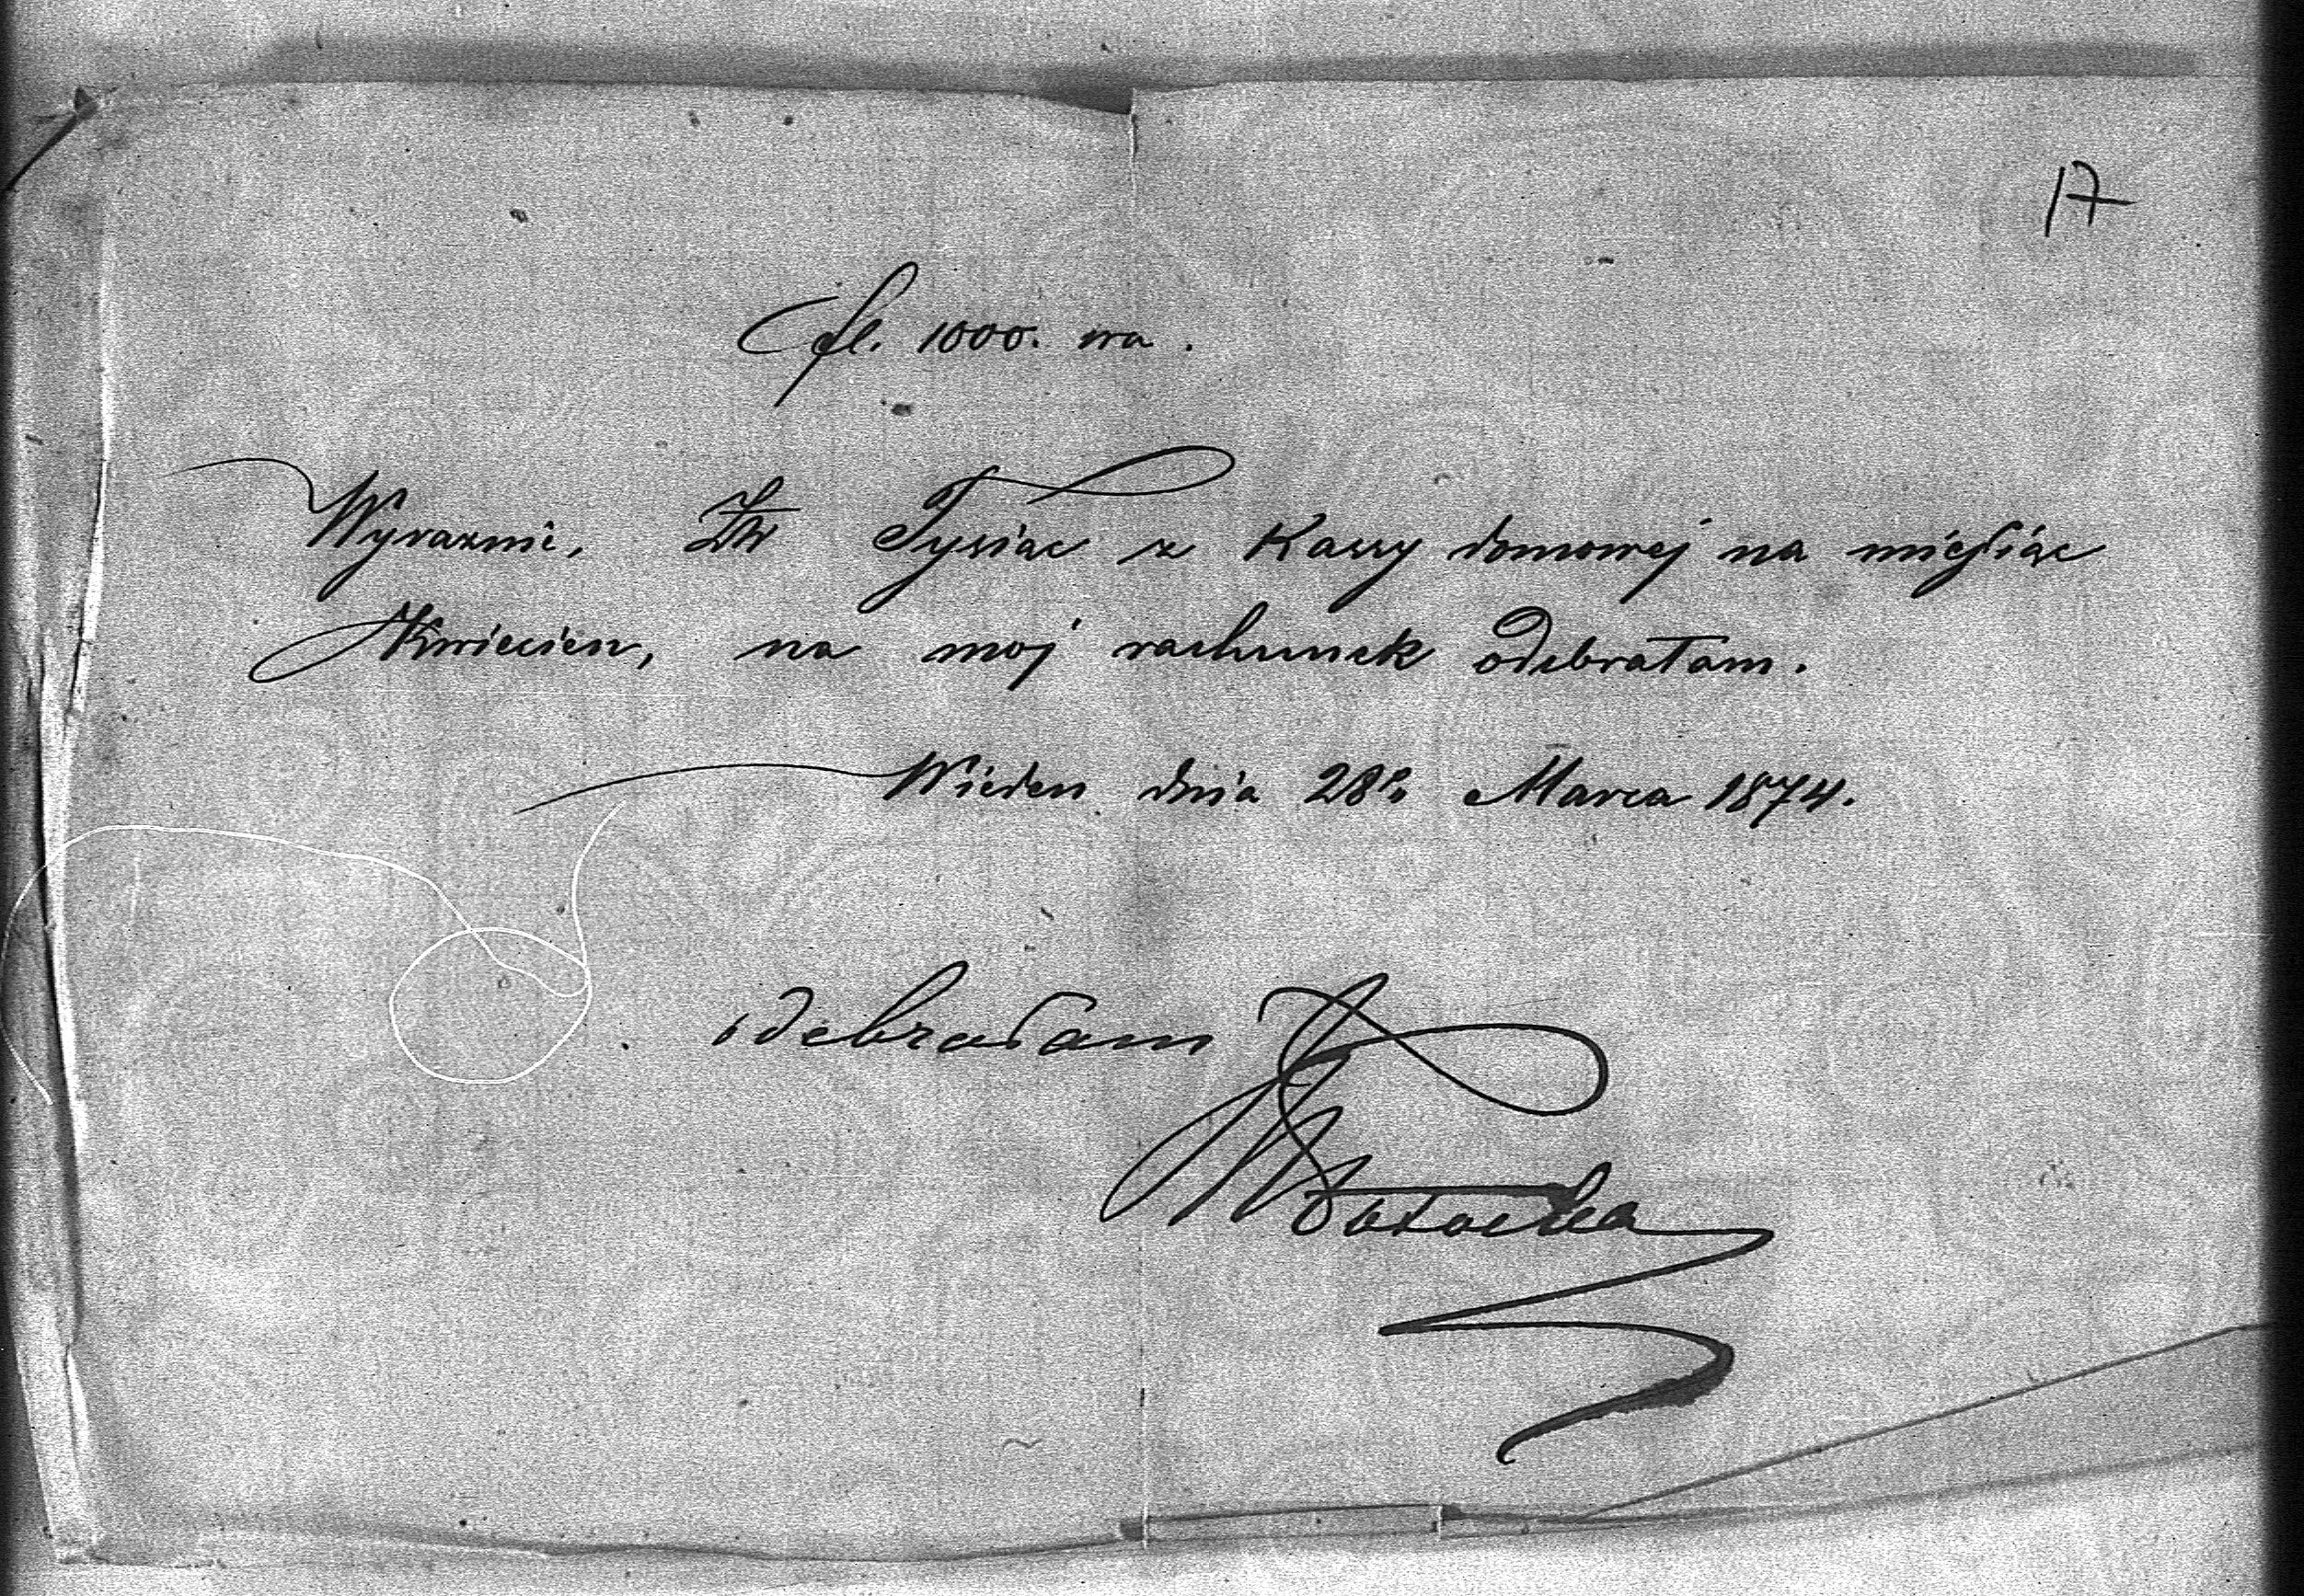 17
fl. 1000. wa.
Wyraznie, Złr Tysiac z Kassy domowej na miesiąc
Kwiecien, na moj rachunek odebrałam.
Wieden dnia 28o Marca 1874.
odebrałam
Potocka